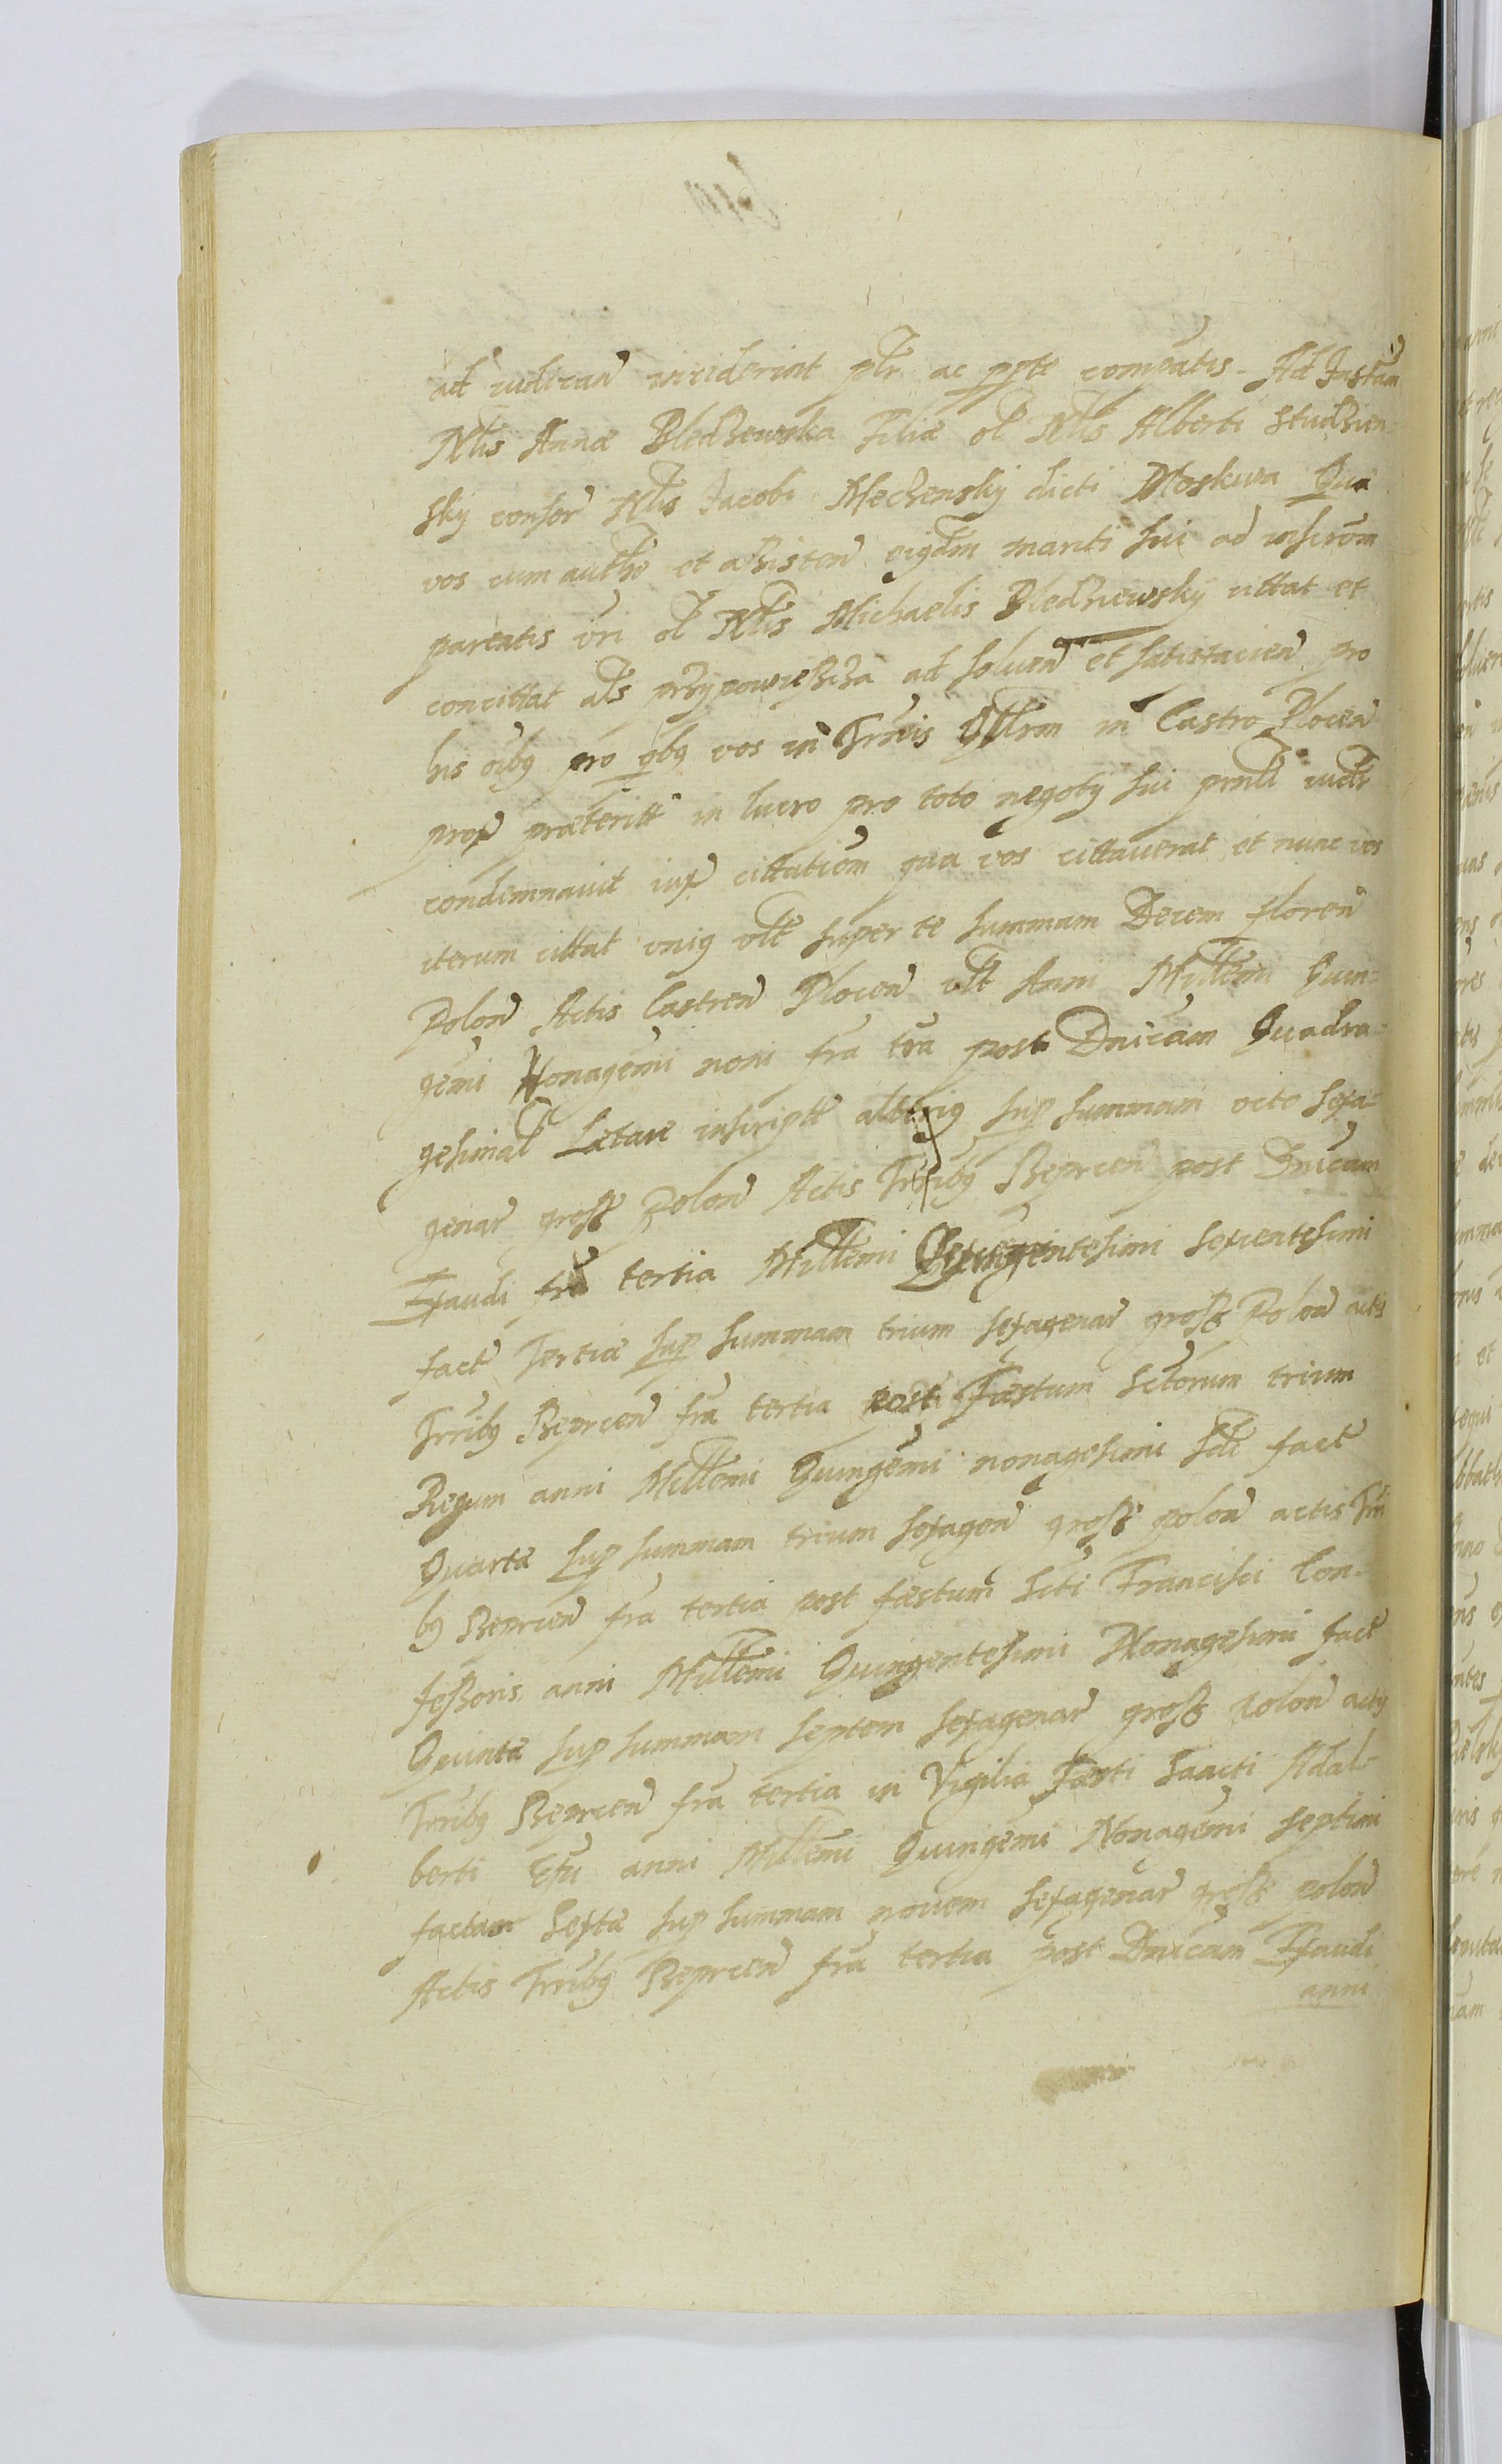 ad iudicand̃ inciderint pltr̃ ac ppte compeatis. Ad Instam
Nblis Annæ Bledzewska Filiæ ol Nblis Alberti Studzien-
sky consor̃ Nblis Jacobi Mechensky dicti Moskwa Quæ
vos cum auth et assisten̄ eiusdm mariti sui ad inscrōm
pareatis vri ol Nblis Michaelis Bledzewsky cittat et
concittat als przypowiesscza ad soluen̄ et satisfacien̄ pro
his oibus pro qbus vos in Trmis Qllrm in Castro Plocen̄
prox præteritt in lucro pro toto negoty sui prnti iudr
condemnauit iux cittatiom qua vos cittauerat et nunc vos
iterum cittat unius vdlt super te summam Decem floren̄
Polon̄ Actis Castren̄ Plocen̄ vlt Anni Millemi Quin-
gemi Nonagemi noni fra tra post Dnicam Quadra-
gesimal Lætare inscriptt alterius sup summam octo sexa-
genar̃ gross Polon̄ Actis Trribus Beprcen̄ post Dnicam
Exaudi fra tertia Millemi sexcentesimi
fact Tertiæ sup summam trium sexagenar̃ gross Polon̄ actis
Trribus Beprcen̄ fra tertia post Fæstum Sctorum trium
Regum anni Millemi Quingemi nonagesimi sdi fact
Quartæ sup summam trium sexagen̄ gross polon̄ actis Trri
bus Beprcen̄ fra tertia post fæstum Scti Francisci Con-
fessoris anni Millemi Quingentesimi Nonagesimi fact
Quintæ sup summam septem sexagenar̃ gross Polon̄ actis
Trribus Beprcen̄ fra tertia in Vigilia Fæsti Sancti Adal-
berti Epi anni Millemi Quingemi Nonagemi septimi
factam Sextæ sup summam nouem sexagenar̃ gross polon̄
Actis Trribus Beprcen̄ fra tertia post Dnicam Exaudi
anni